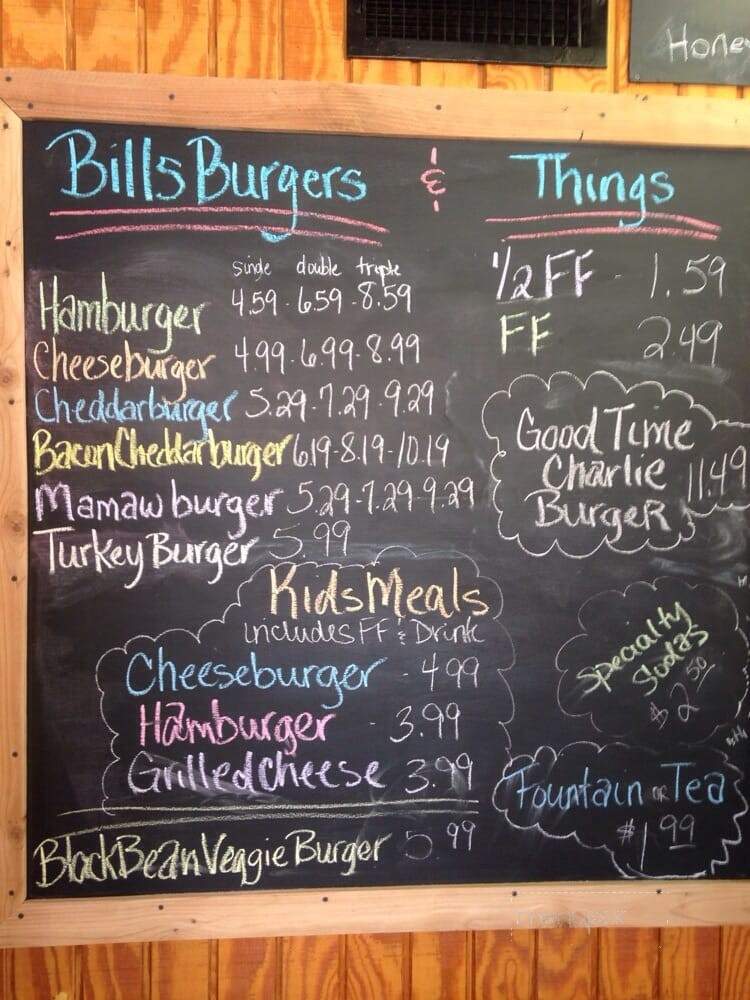 Hone
Bills Burgers & Things
single double triple
Hamburger 4.59-6.59-8.59
Cheeseburger 4.99-6.99-8.99
Cheddarburger 5.29-7.29-9.29
Bacon Cheddarburger 6.19-8.19-10.19
Mamaw burger 5.29-7.29-9.29
Turkey Burger 5.99
Kids Meals
includes FF & Drink
Cheeseburger - 4.99
Hamburger - 3.99
Grilled Cheese 3.99
Black Bean Veggie Burger 5.99
1/2 FF - 1.59
FF 2.49
Good Time
Charlie 11.49
Burger
Specialty
Sodas
$2.50
Fountain or Tea
$1.99